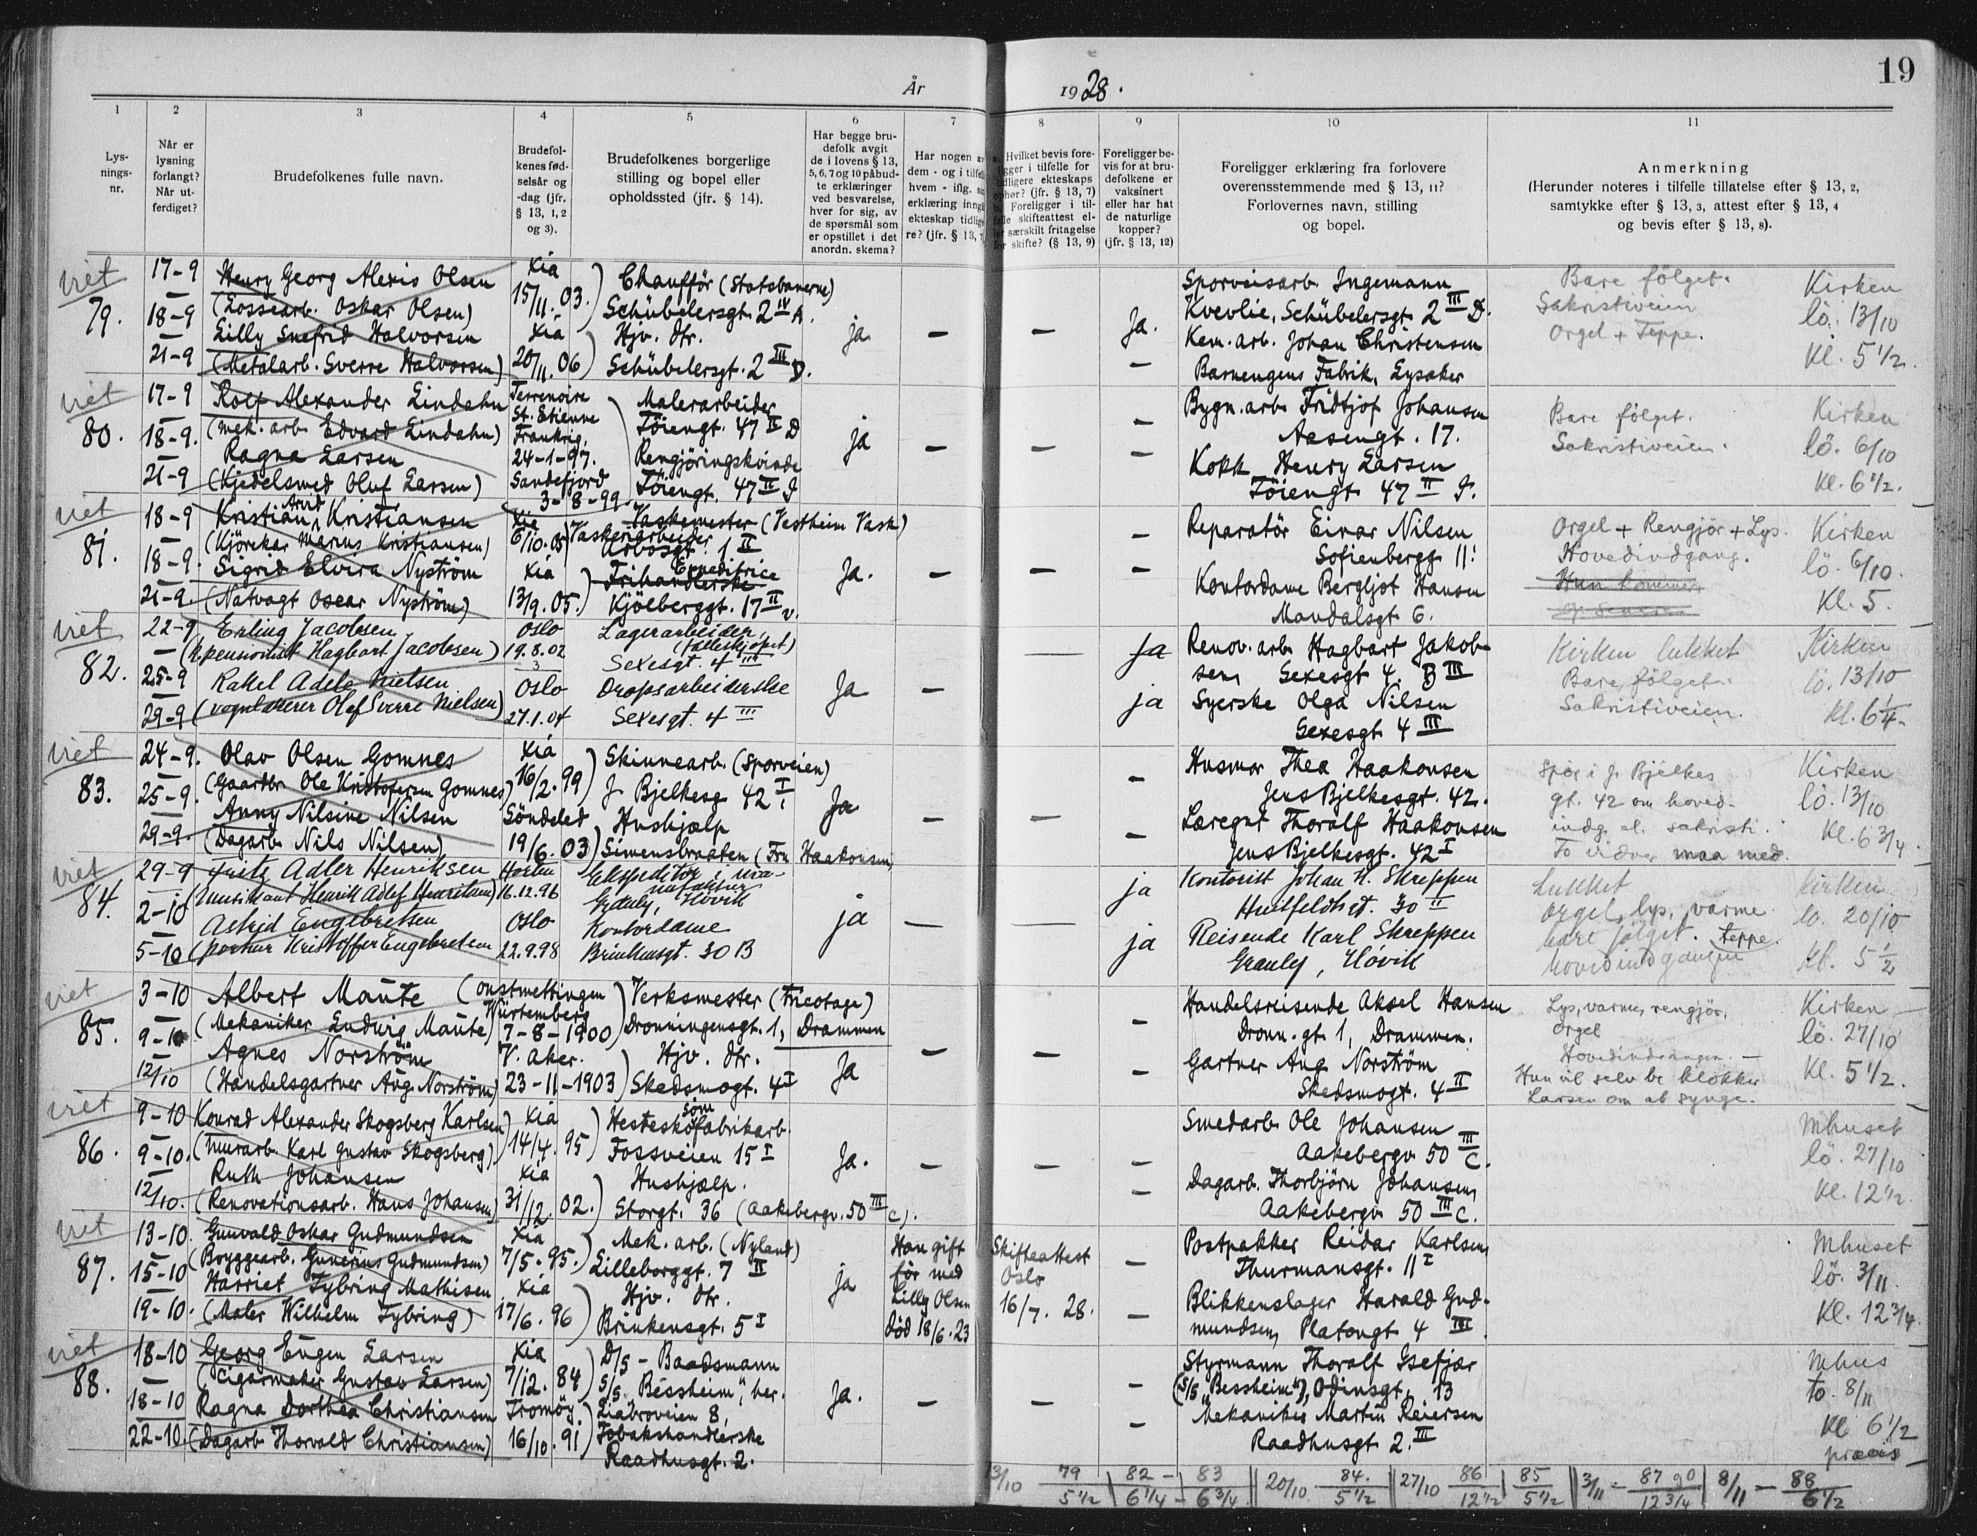 19
År 1928.
1 2 3 4 5 6 7 8 9 10 11
Lysningsnr.
Når er lysning forlangt? Når utferdiget?
Brudefolkenes fulle navn.
Brudefolkenes fødselsår og -dag (jfr. § 13, 1, 2 og 3).
Brudefolkenes borgerlige stilling og bopel eller opholdssted (jfr. § 14).
Har begge brudefolk avgit de i lovens § 13, 5, 6, 7 og 10 påbudte erklæringer ved besvarelse, hver for sig, av de spørsmål som er opstillet i det anordn. skema?
Foreligger bevis for at brudefolkene er vaksinert eller har hat de naturlige kopper? (jfr. § 13, 12)
Foreligger erklæring fra forlovere overensstemmende med § 13, 11? Forlovernes navn, stilling og bopel.
Anmerkning
(Herunder noteres i tilfelle tillatelse efter § 13, 2, samtykke efter § 13, 3, attest efter § 13, 4 og bevis efter § 13, 8).
viet
79.
17-9
18-9
21-9
Henry Georg Alexis Olsen
(Lossearb. Oskar Olsen)
Lilly Snefrid Halvorsen
(Metalarb. Sverre Halvorsen)
Kia
15/11. 03.
Kia
20/11. 06
Chauffør (Statsbanerne)
Schübelersgt. 2 IV A.
Hjv. dtr.
Schübelersgt. 2 III D.
ja
—
—
Ja.
—
Sporveisarb. Ingemann
Kvevlie, Schübelersgt 2 III D.
Kem. arb. Johan Christensen
Barnengens Fabrik, Lysaker
Bare følget.
Sakristiveien
Orgel + Teppe.
Kirken
lö. 13/10
Kl. 5 1/2.
viet
80.
17-9
18-9.
21-9
Rolf Alexander Lindahn
(Mek. arb. Edvard Lindahn)
Ragna Larsen
(Kjedelsmed Oluf Larsen)
Terrenoire
St. Etienne
Frankrig,
24-1-97.
Sandefjord
3-8-99.
Malerarbeider
Töiengt. 47 II D
Rengjöringskvinde
Töiengt. 47 II
ja
—
—
—
—
Bygn. arb. Fridtjof Johansen
Aasengt. 17.
Kokk Henry Larsen
Töiengt 47 II
Bare følget.
Sakristiveien.
Kirken
lö. 6/10
Kl. 6 1/2.
viet
81.
18-9
18-9.
21-9.
Kristian Arvid Kristiansen
(Kjörekar Marius Kristiansen)
Sigrid Elvira Nyström
(Natvagt Oscar Nyström)
Kia
6/10. 05
Kia
13/9. 05.
Vaskemester (Vestheim Vask)
Vaskeriarbeider
1 II
Expeditrice
Kjölberggt. 17 II v.
Ja.
—
—
—
—
Reparatör Einar Nilsen
Sofienberggt 11!
Kontordame Bergljot Hansen
Mandalsgt 6.
Orgel + Rengjør + Lys.
Hovedindgang.
Hun kommer
Kirken
lö. 6/10.
Kl. 5.
viet
82.
22-9
25-9
29-9
Erling Jacobsen
(K. pensionist Hagbart Jacobsen)
Rakel Adele Nielsen
(regulerer Olaf Sverre Nielsen)
Oslo
19.8.02
Oslo
27.1.04
Lagerarbeider,
(Fælleskjøpet)
Sexesgt. 4 III
Dropsarbeiderske
Sexesgt. 4 III
Ja
—
—
ja
ja
Renov. arb. Hagbart Jakobsen,
Sexesgt 4. B III
Syerske Olga Nilsen
Sexesgt 4 III
Kirken lukket
Bare følget.
Sakristiveien.
Kirken
lö. 13/10
kl. 6 1/4.
viet
83.
24-9.
25-9.
29-9.
Olav Olsen Gomnes
(Gaardbr Ole Kristofersen Gomnes)
Anny Nilsine Nilsen
(Dagarb. Nils Nilsen)
Kia
16/2. 99
Söndeled
19/6. 03
Skinnearb. (Sporveien)
J. Bjelkesg 42 I.
Hushjælp
Simensbraaten (Fru Haakonsen)
Ja
—
—
—
—
Husmor Thea Haakonsen
Jens Bjelkesgt. 42.
Læregut Thoralf Haakonsen
Jens Bjelkesgt. 42 I
Spör i J. Bjelkes
gt. 42 om hoved-
indg. el. sakristi.
To vidner maa med.
Kirken
lö. 13/10
Kl. 6 3/4.
viet
84.
29-9
2-10
5-10
Fritz Adler Henriksen
(Musikant Henrik Adolf Henriksen)
Astrid Engebretsen
(portner Kristoffer Engebretsen
Horten
16.12.96
Oslo
22.9.98
Ekspeditør i manufaktur
Granly, Høvik
Kontordame
Brinkensgt. 30 B
ja
—
—
ja
ja
Kontorist Johan H. Skreppen
Huitfeldtsgt. 30 II
Reisende Karl Skreppen
Granly, Høvik
Lukket
orgel, lys, varme
bare følget. teppe.
hovedindgangen
Kirken
lö. 20/10
kl. 5 1/2
viet
85.
3-10
9-10
12/10
Albert Maute
(Mekaniker Ludwig Maute)
Agnes Norström
(Handelsgartner Aug. Norström)
(Onstmettingen
Würtemberg
7-8-1900
V. Aker.
23-11-1903
Verksmester (tricotage)
Dronningensgt. 1, Drammen
Hjv. dtr.
Skedsmogt. 4 I
Ja
—
—
—
—
Handelsreisende Aksel Hansen
Dronn. gt 1, Drammen.
Gartner Aug. Norström
Skedsmogt. 4 II
Lys, varme, rengjør,
orgel
Hovedindgangen. —
Hun vil selv be klokker
Larsen om at synge.
Kirken
lö. 27/10
Kl. 5 1/2.
viet
86.
9-10
9-10.
12/10.
Konrad Alexander Skogsberg Karlsen
(Murarb. Karl Gustav Skogsberg)
Ruth Johansen
(Renovationsarb. Hans Johansen)
Kia
14/4. 95
Kia
31/12. 02.
Hesteskosömfabrikarb.
Fossveien 15 I
Hushjælp.
Storgt. 36 (Aakebergv. 50 III C).
Ja.
—
—
—
—
Smedarb. Ole Johansen
Aakebergv 50 III C.
Dagarb. Thorbjörn Johansen,
Aakebergv 50 III C.
Mhuset
lö. 27/10
Kl. 12 1/2.
viet
87.
13-10.
15-10
19-10.
Gunvald Oskar Gudmundsen
(Bryggearb. Gunerius Gudmundsen)
Harriet Tybring Mathisen
(Maler Wilhelm Tybring)
Kia
7/5. 95.
Kia
17/6. 96
Mek. arb. (Nyland)
Lilleborggt. 7 II
Hjv. dtr.
Brinkensgt. 5 I
ja
Han gift
för med
Lilly Olsen
död 18/6. 23
Skifteattest
Oslo
16/7. 28.
—
—
Postpakker Reidar Karlsen,
Thurmansgt. 11 I
Blikkenslager Harald Gudmundsen,
Platougt 4 III.
Mhuset
lö. 3/11.
Kl. 12 3/4.
viet
88.
18-10
18-10
22-10.
Georg Eugen Larsen
(Cigarmaker Gustav Larsen)
Ragna Dorthea Christiansen
(Dagarb Thorvald Christiansen)
Kia
7/12. 84
Tromöy
16/10. 91
D/S - Baadsmann
S/S „Bessheim", her.
Ljabroveien 8,
Tobakshandlerske
Raadhusgt. 2.
Ja.
—
—
—
—
Styrmann Thoralf Isefjær
(S/S „Bessheim"), Odinsgt. 13
Mekaniker Martin Reiersen
Raadhusgt 2. III
Mhus
to. 8/11
Kl 6 1/2
præcis
3/10 79 5 1/2 82 - 83 6 1/4 - 6 3/4 20/10 84. 5 1/2 27/10 86 12 1/2 85 5 1/2 3/11 - 87 12 3/4 8/11 - 88 6 1/2